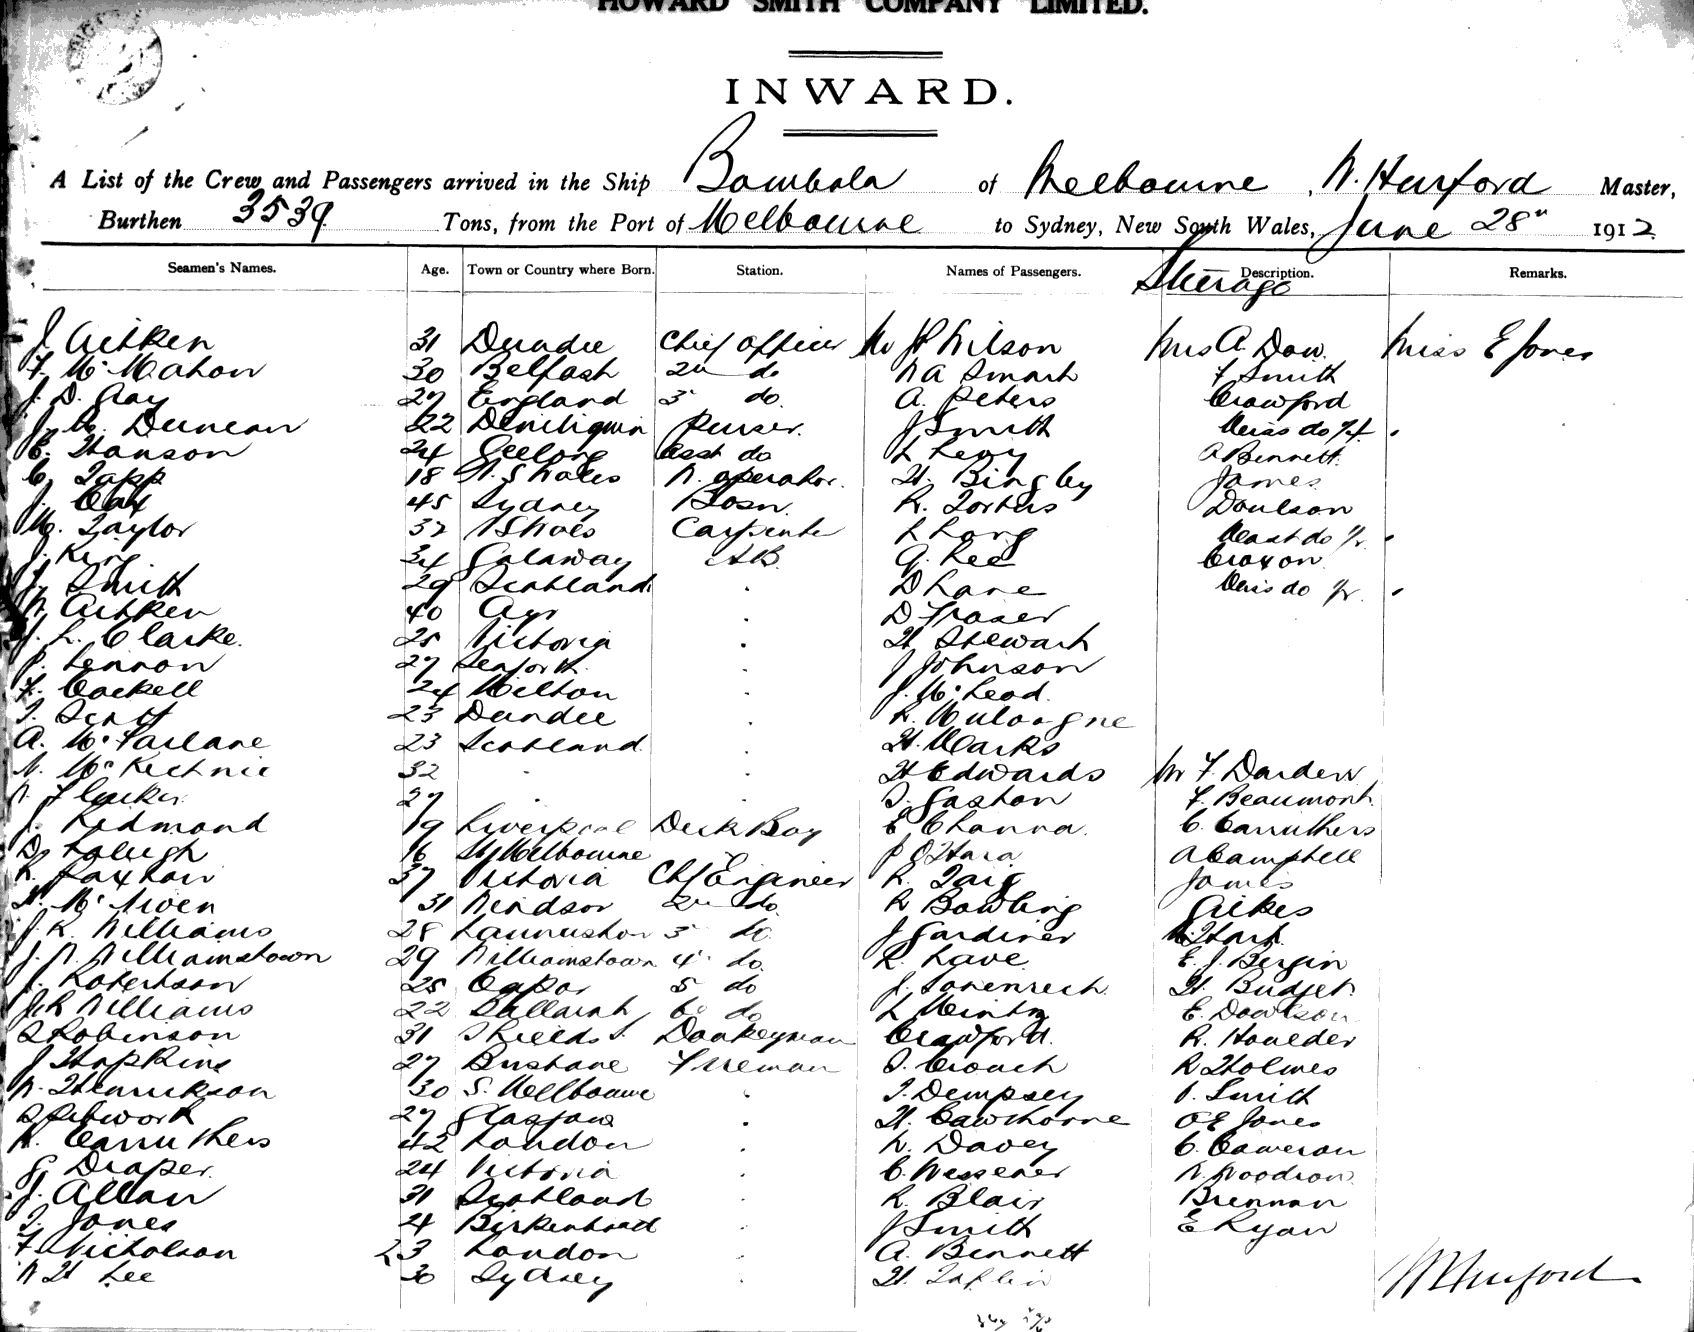 HOWARD SMITH COMPANY LIMITED.
INWARD.
A List of the Crew and Passengers arrived in the Ship Bombala of Melbourne, W. Hurford Master,
Burthen 3539 Tons, from the Port of Melbourne to Sydney, New South Wales, June 28" 1912
Seamen's Names. Age. Town or Country where Born. Station. Names of Passengers. Description. Remarks.
Steerage
J. Aitken 31 Dundee Chief Officer Mr J P Wilson Mrs A. Dow. Miss E Jones
F. McMahon 30 Belfast 2n do W A Smart F Smith
J. D. Gray 27 England 3 do. A. Peters Crawford
Duncan 22 Deniliquin Purser. J Smith Miss do
C. Hanson 24 Geelong Asst do L Levy A Bennett.
C. Tapp 18 N. S Wales W. operator. H. Bingley James
J. Cax 45 Sydney Bosn. R. Doulson
Taylor 32 Carpenter L Long Mast do
J. King 34 Galaway AB. G. Lee Croxon
J. Smith 29 Scotland D Lane do
W. Aitken 40 Ayr D Fraser
J. L. Clarke. 25 Victoria H Stewart
P. Lennon 27 Seaforth J Johnson
F. Cockell 24 Milton J. McLeod.
T. Scott 23 Dundee
A. McFarlane 23 Scotland H. Marks
N. McKechnie 32 H Edwards Mr F. Darden
W. 27 Gaston F. Beaumont
J. Redmond 19 Liverpool Deck Boy E Channa. C. Carruthers
16 Melbourne P O'Hara A Campbell
37 Victoria Chf Engineer R. Taig James
McNiven 31 Windsor 2n do. R Bowling Gilkes
J. R. Williams 28 Launceston 3 do. J Gardiner W. Hart
J. W. Williamstown 29 Williamstown 4 do. R. Lave E. J. Bergin
J. Robertson 25 5 do J. H. Budget.
J R Williams 22 Ballarat 6 do L E. Dowlson
Robinson 31 Shields S. Donkeyman Crawford. R. Houlder
J Hopkins 27 Brisbane Fireman T. Crouch R Holmes
W. Henrickson 30 S. Melbourne T. Dempsey Smith
27 Glasgow H. Cawthorne O E Jones
Carruthers 42 London W. Davey C. Cameron
G. Draper. 24 Victoria C. Wessener W. Woodrow.
J. Allan 31 Scotland R. Blair Brennan
T. Jones 24 Birkenhead J Smith E Ryan
F. Nicholson 23 London A. Bennett
W H Lee 30 Sydney H. Taplin
W Hurford